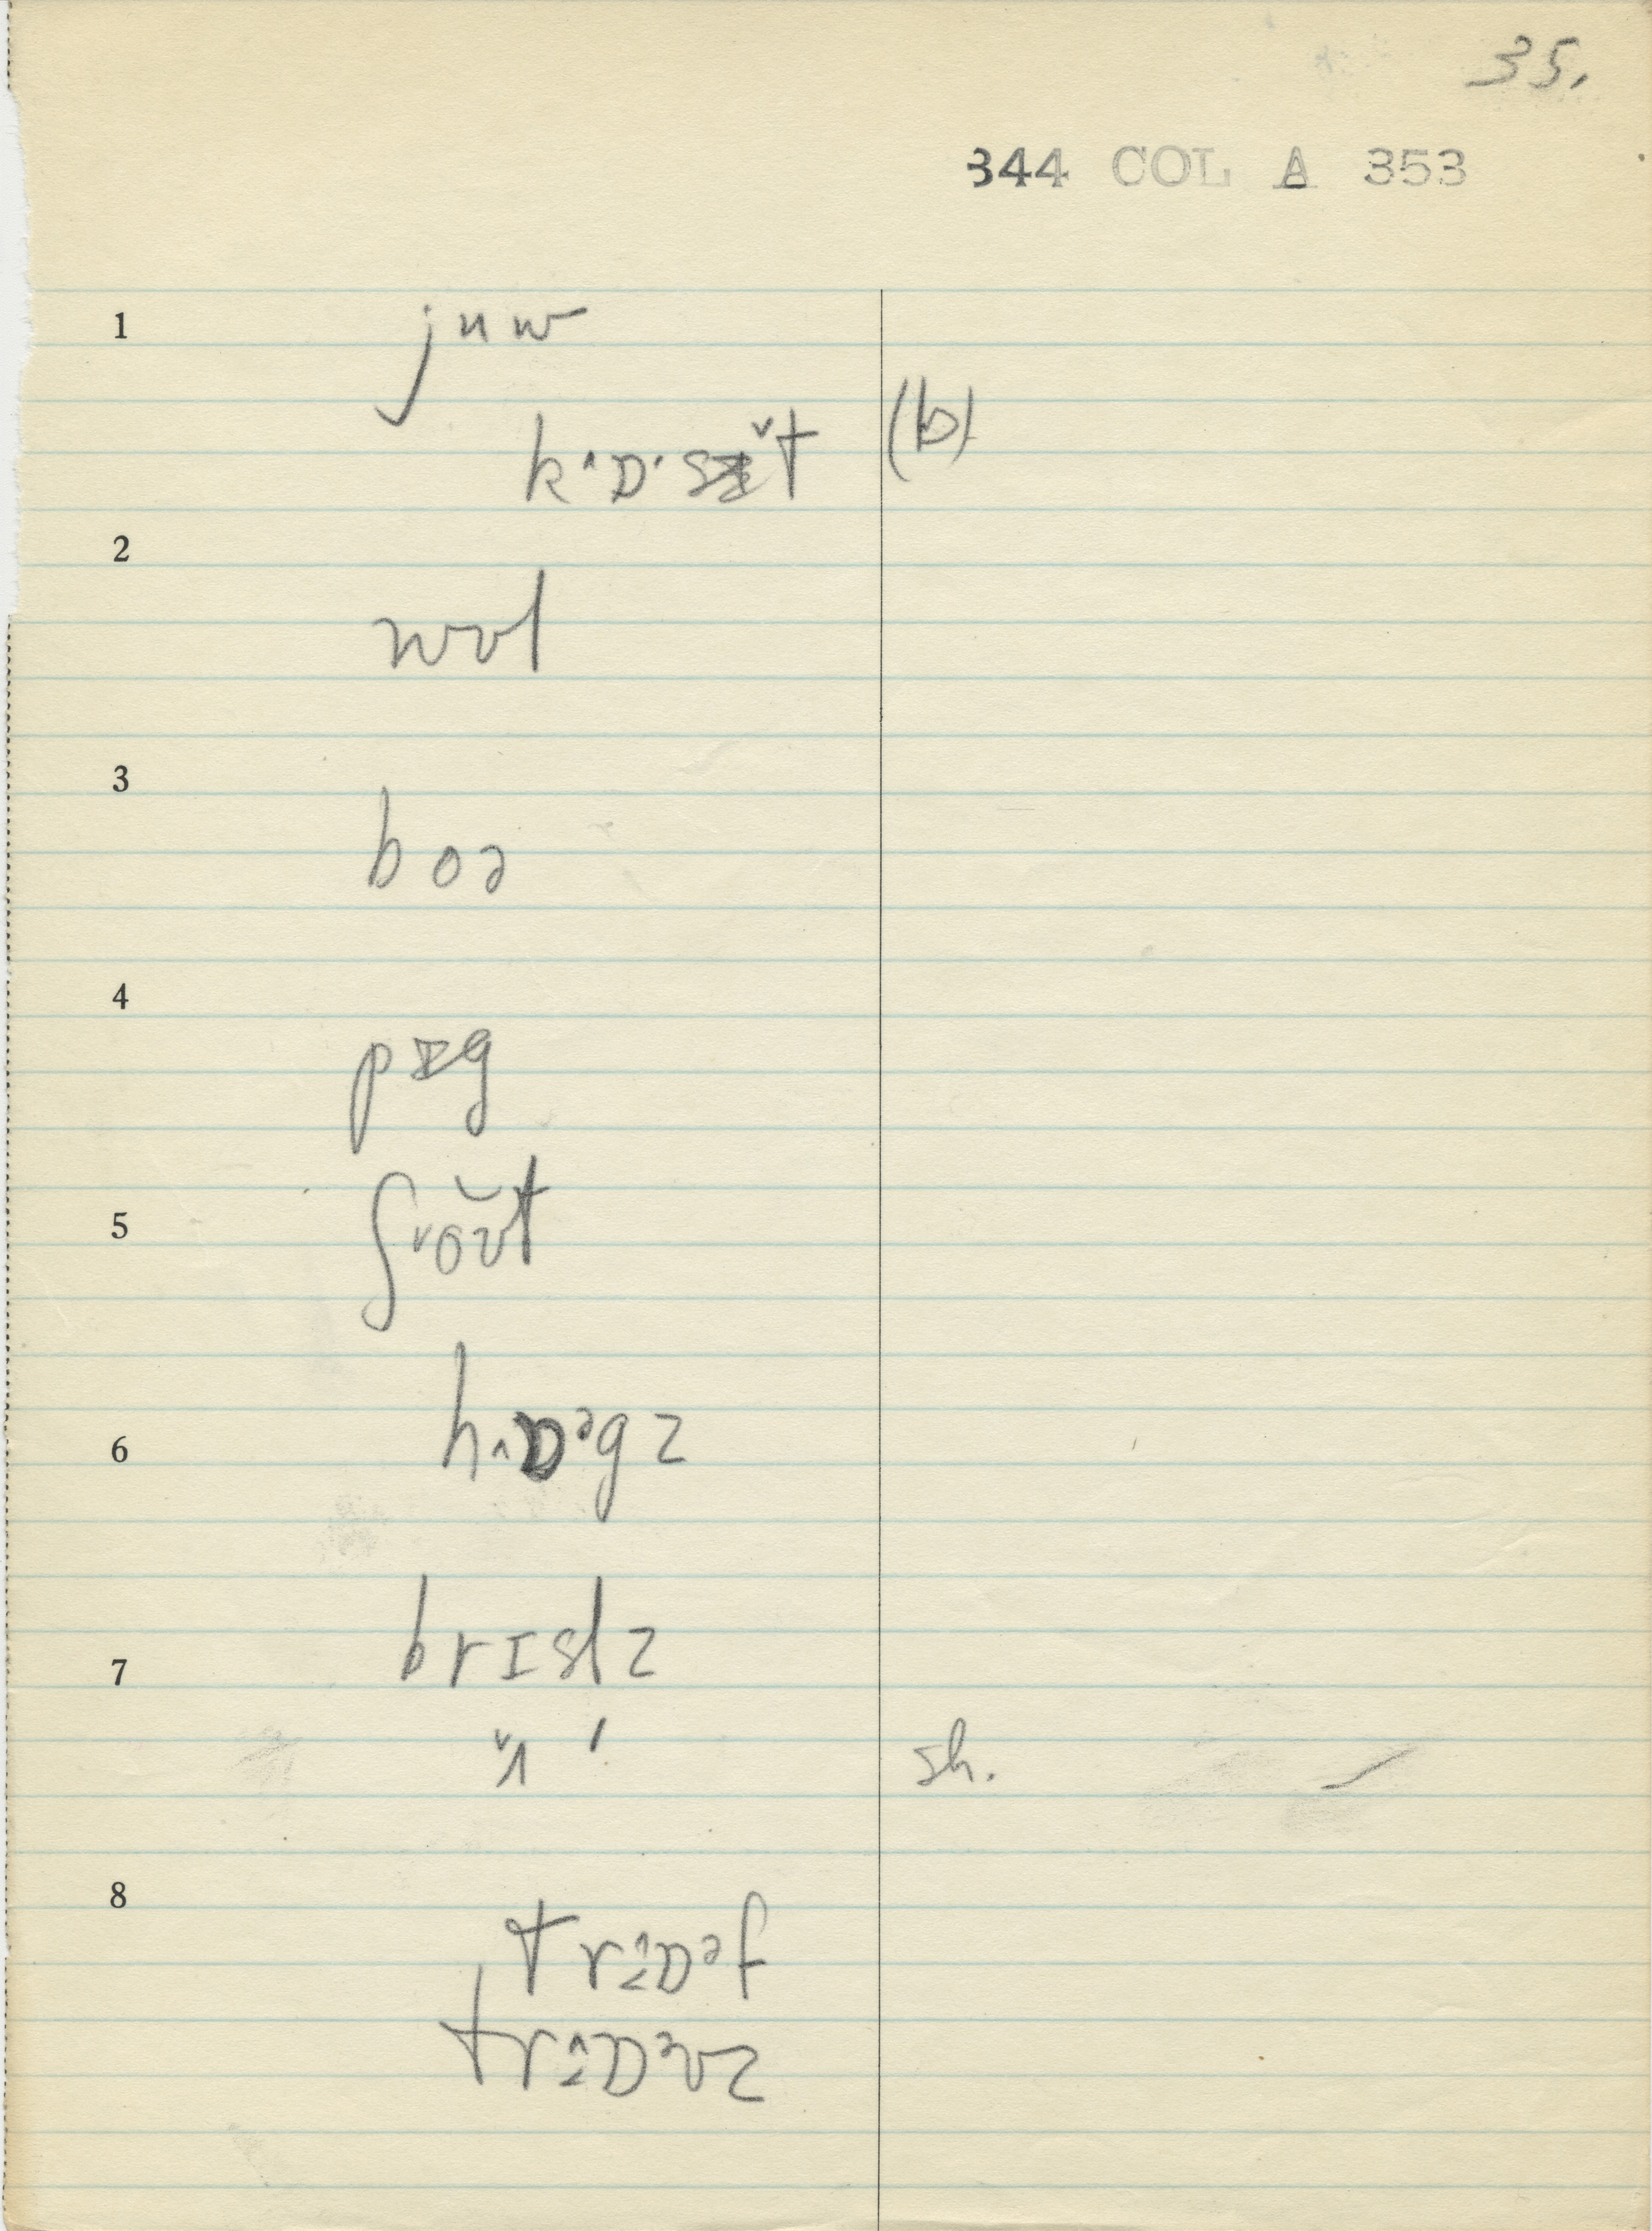 35.
344 COL A 353
1 juw
k˄ɒ˒sɪ̆t (b)
2 wʊl
3 boə
4 pɪg
5 ʃ˅oʊ̆t
6 h˄ɒᵊgz
7 brɪslz
sh.
8 tr˄ɒᵊf
tr˄ɒᵊvz